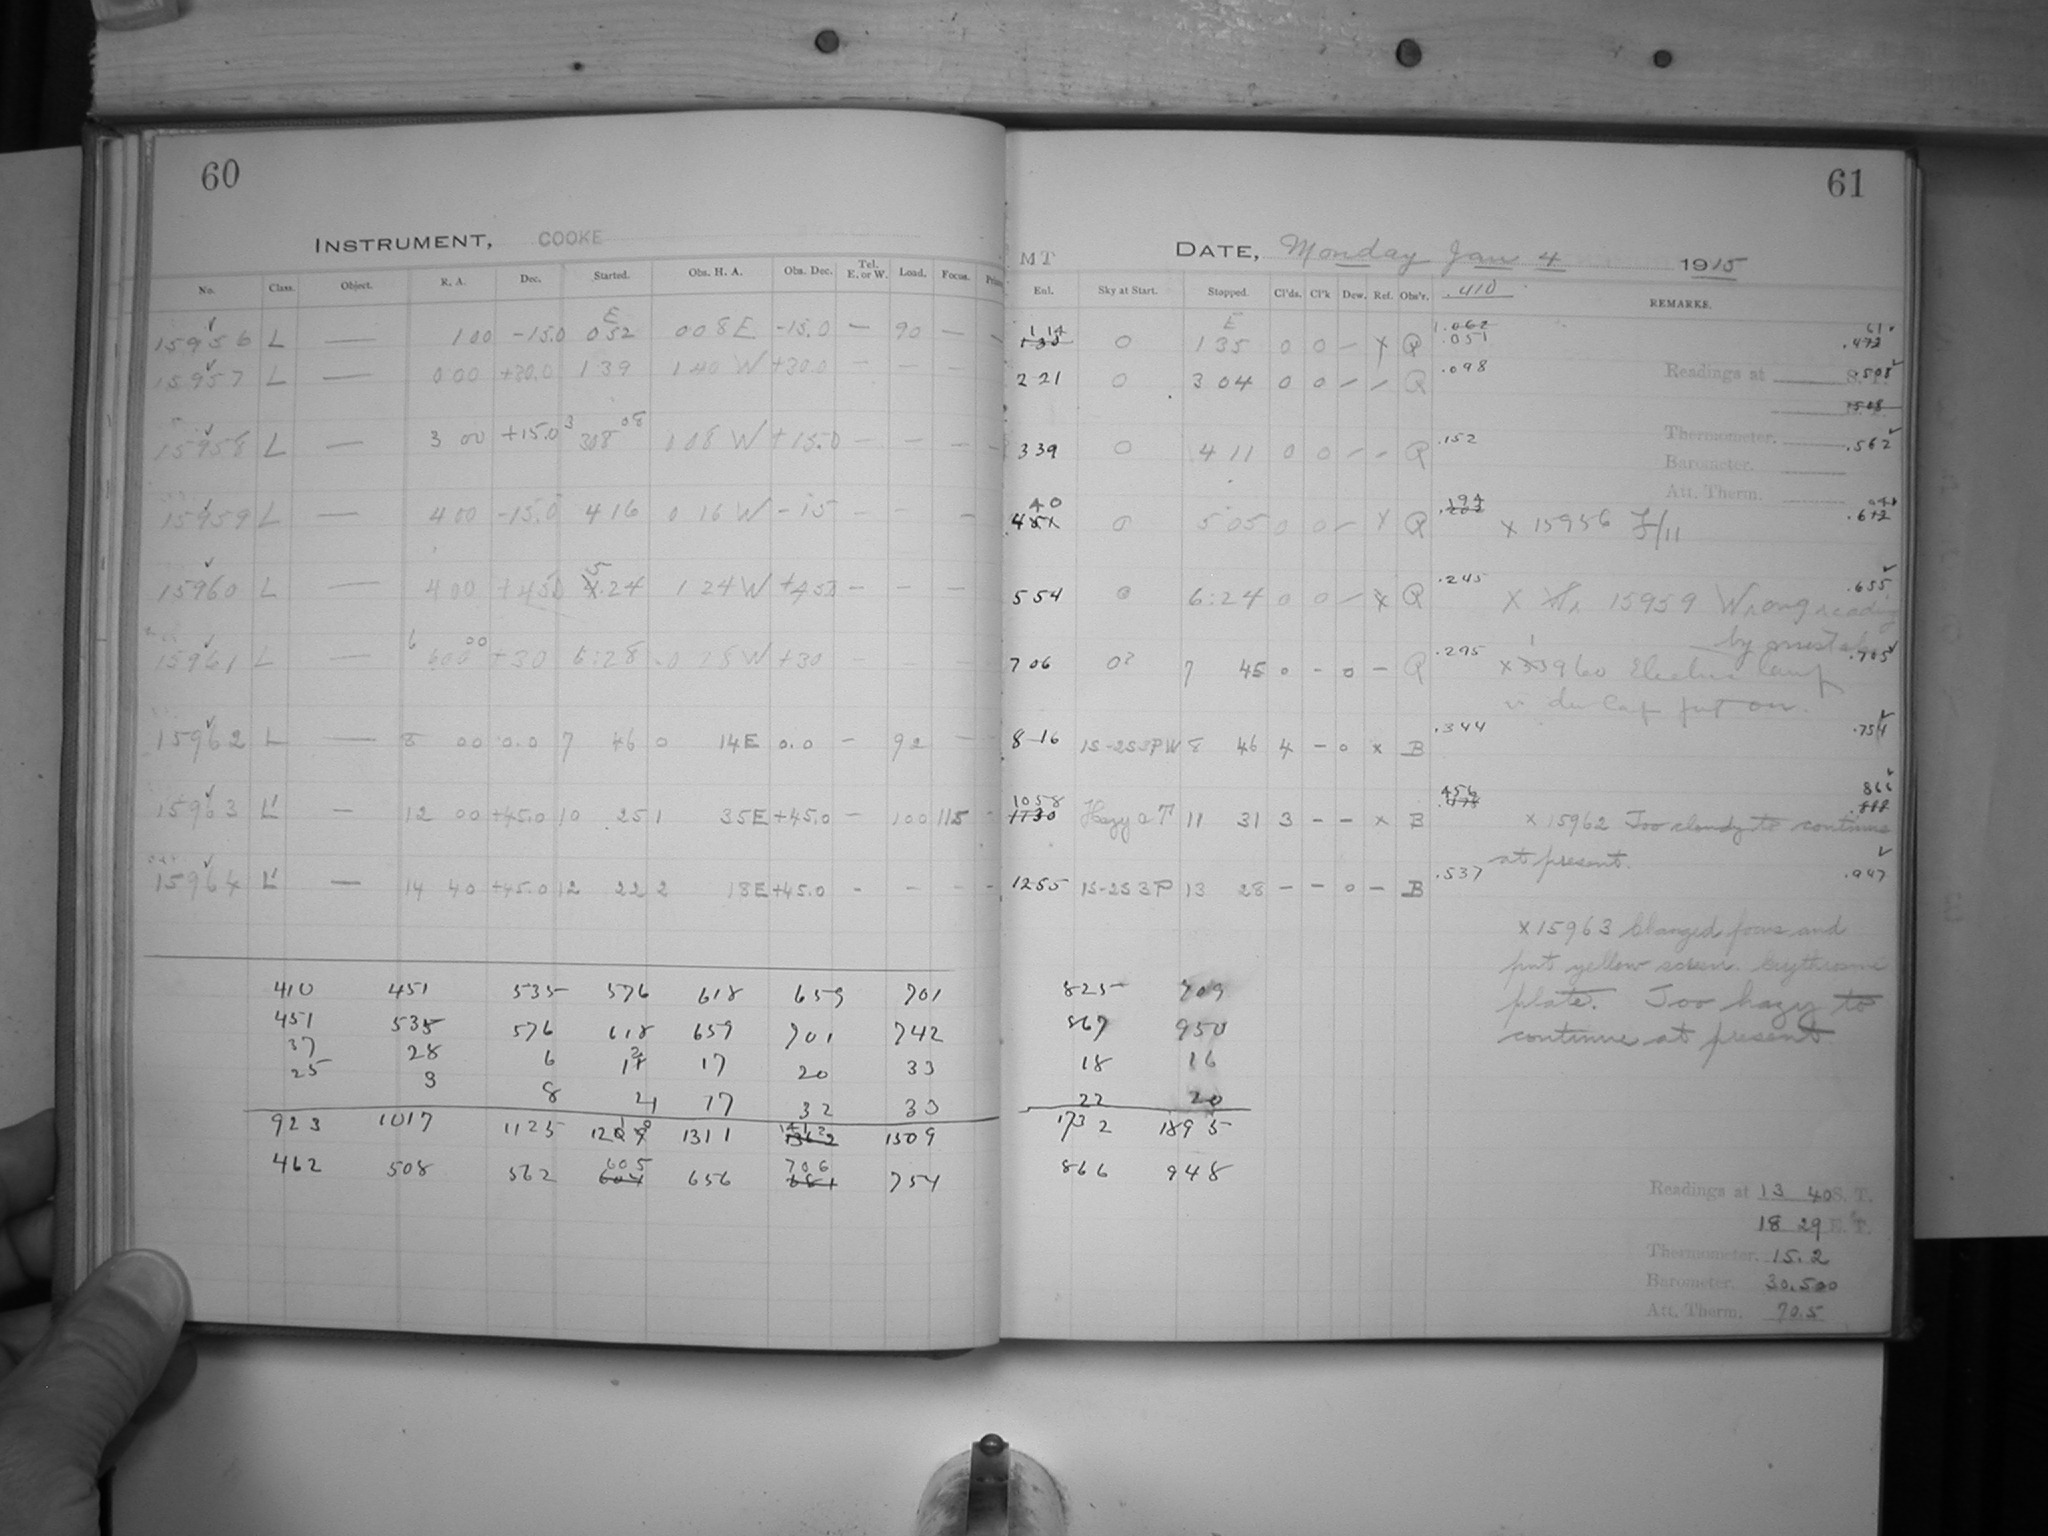 60
INSTRUMENT, COOKE
No. Class. Object. R. A. Dec. Started. Obs. H. A. Obs. Dec. Tel. E. or W. Load. Focus.
E
15956 L — 1 00 -15.0 0 52 0 08 E -15.0 — 90 —
15957 L — 0 00 +30.0 1 39 1 40 W +30.0 — — —
15958 L — 3 00 +15.0 3 08 1 08 W +15.0 — — —
15959 L — 4 00 -15.0 4 16 0 16 W -15 — — —
15960 L — 4 00 +45.0 5.24 1 24 W +45.0 — — —
15961 L — 6 00 +30 6:28 0 28 W +30 — — —
15962 L — 8 00 0.0 7 46 0 14 E 0.0 — 92 —
15963 L' — 12 00 +45.0 10 25 1 35 E +45.0 — 100 115 -
15964 L' — 14 40 +45.0 12 22 2 18 E +45.0 - - - -
410 451 535 576 618 659 701
451 535 576 618 659 701 742
37 28 6 17 20 33
25 8 21 17 32 33
923 1017 1125 1311 1509
605 706
462 508 562 604 656 681 754
61
MT DATE, Monday Jan 4 1915
Enl. Sky at Start. Stopped. Cl'ds. Cl'k Dew. Ref. Obs'r. .410 REMARKS.
1 14 E 1.062
1 35 0 1 35 0 0 — X Q .051 .473
2 21 0 3 04 0 0 — — Q .098 Readings at S. T. .508
.508
3 39 0 4 11 0 0 — — Q .152 Thermometer. .562
Barometer.
Att. Therm.
40 .194
0 5 05 0 0 — X Q x 15956 F/11
5 54 0 6:24 0 0 — X Q .245 X 15959 Wrong reading .655
by mistake
7 06 0? 7 45 0 - 0 — Q .295 .705
x 15960 Electric lamp
8 16 1S-2S3PW 8 46 4 - 0 x B .344 .754
10 58 456 866
11 30 Hazy 11 31 3 - - x B x 15962 Too cloudy to continue
at present.
12 55 1S-2S 3P 13 28 - - 0 - B .537 .947
x 15963 Changed focus and
put yellow screen. Erythrosine
plate. Too hazy to
continue at present
825 909
867 950
18 16
22 20
1732 1895
866 948
Readings at 13 40 S. T.
18 29 E. T.
Thermometer. 15.2
Barometer. 30.500
Att. Therm. 70.5